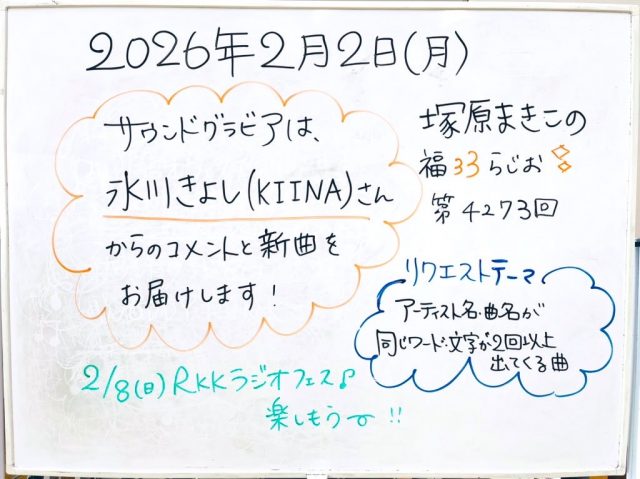 2026年2月2日(月)
サウンドグラビアは、
氷川きよし(KIINA)さん
からのコメントと新曲を
お届けします!
塚原まきこの
福33らじお
第4273回
リクエストテーマ
アーティスト名・曲名が
同じワード・文字が2回以上
出てくる曲
2/8(日)RKKラジオフェス♪
楽しもうー!!